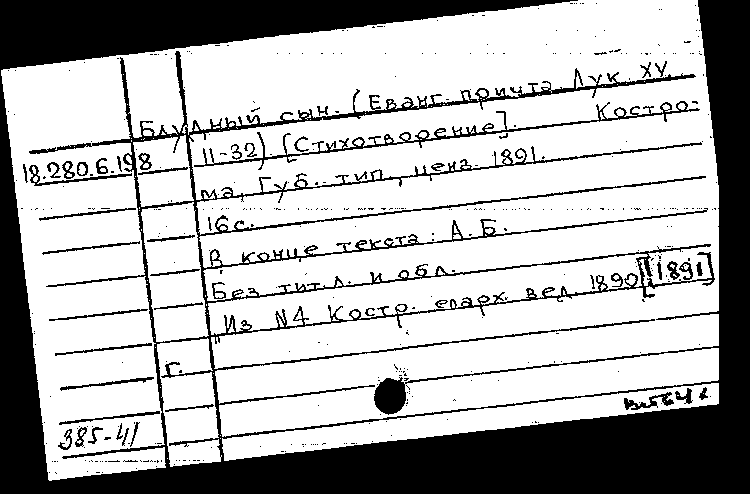 Блудный сын. (Еванг. притча Лук. XV.
18.280.6.198
11-32) [Стихотворение]. Костро-
ма, Губ. тип., ценз. 1891.
16 с.
В конце текста: А. Б.
Без тит. л. и обл.
"Из N4 Костр. епарх. вед. 1890 [1891]
г.
385-41